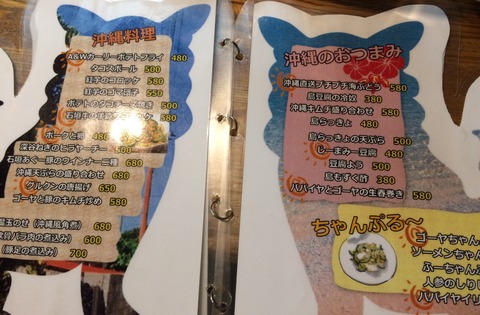 沖縄料理
A&Wカーリーポテトフライ 480
タコスボール 500
紅芋のコロッケ 580
紅芋のゴマ団子 550
ポテトのタコチーズ焼き 500
ポークと卵 480
深谷ねぎのヒラヤーチー 500
石垣あぐー豚のウインナー二種 680
沖縄天ぷらの盛り合わせ 680
グルクンの唐揚げ 650
ゴーヤと豚のキムチ炒め 580
温玉のせ(沖縄風角煮) 680
軟骨バラ肉の煮込み) 600
(豚足の煮込み) 700
沖縄のおつまみ
沖縄直送プチプチ海ぶどう 580
島豆腐の冷奴 380
沖縄キムチ盛り合わせ 580
島らっきょ 480
島らっきょの天ぷら 500
じーまみー豆腐 480
豆腐よう 500
島もずく酢 380
パパイヤとゴーヤの生春巻き 580
ちゃんぷる〜
ゴーヤちゃん
ソーメンちゃん
ふーちゃん
人参のしり
パパイヤイリ